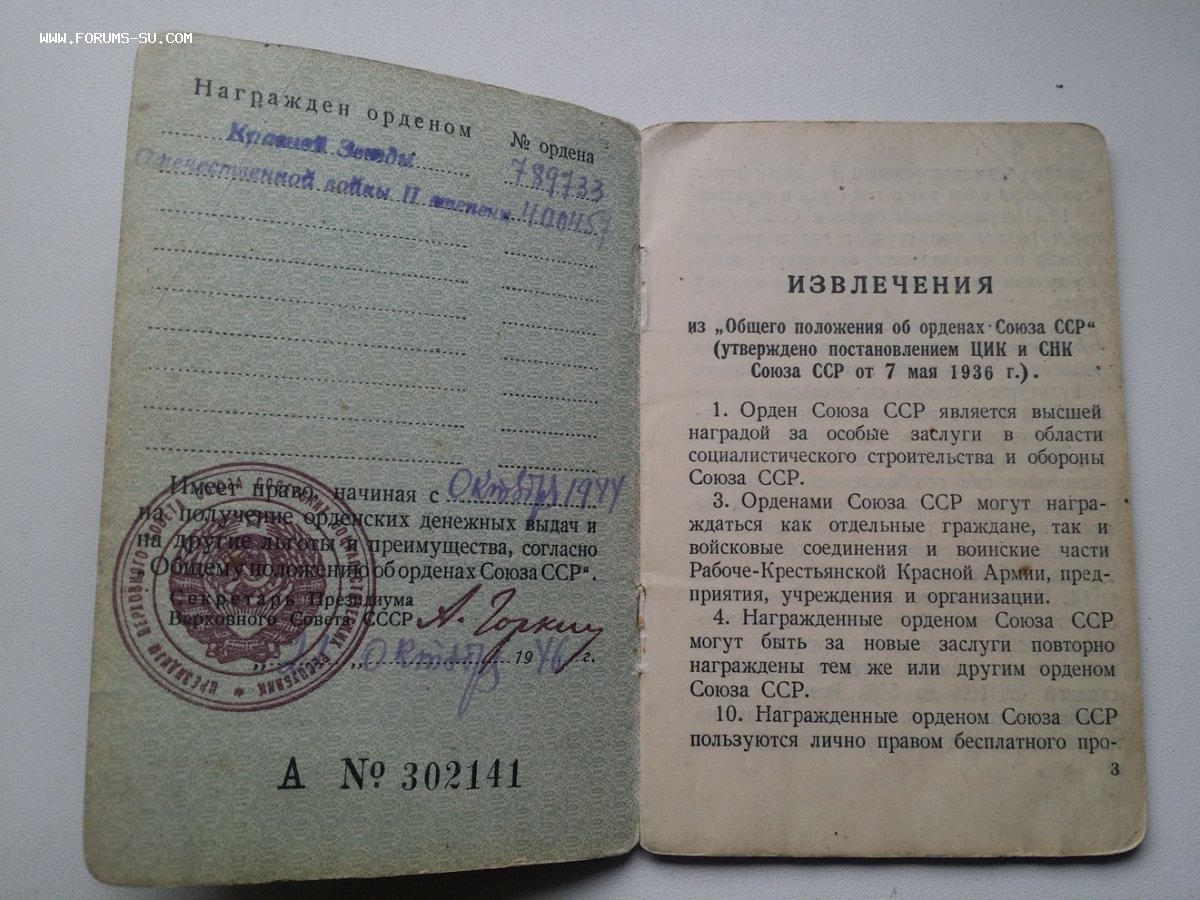 WWW.FORUMS-SU.COM
Награжден орденом
№ ордена
Красной Звезды 789733
Отечественной войны II степени
Имеет право, начиная с Октября 1944
на получение орденских денежных выдач и
на другие льготы и преимущества, согласно
„Общему положению об орденах Союза ССР“.
Секретарь Президиума
Верховного Совета СССР А. Горкин
октября 1946 г.
А № 302141
ИЗВЛЕЧЕНИЯ
из „Общего положения об орденах Союза ССР“
(утверждено постановлением ЦИК и СНК
Союза ССР от 7 мая 1936 г.).
1. Орден Союза ССР является высшей
наградой за особые заслуги в области
социалистического строительства и обороны
Союза ССР.
3. Орденами Союза ССР могут награ-
ждаться как отдельные граждане, так и
войсковые соединения и воинские части
Рабоче-Крестьянской Красной Армии, пред-
приятия, учреждения и организации.
4. Награжденные орденом Союза ССР
могут быть за новые заслуги повторно
награждены тем же или другим орденом
Союза ССР.
10. Награжденные орденом Союза ССР
пользуются лично правом бесплатного про-
3